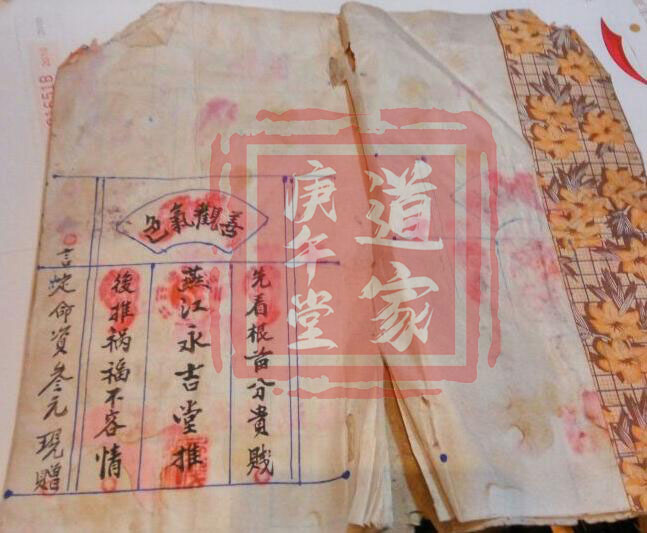 善觀氣色
先看根苗分貴賤
燕江永吉堂推
後推祸福不容情
言定命資叁元現贈
道家
庚午堂